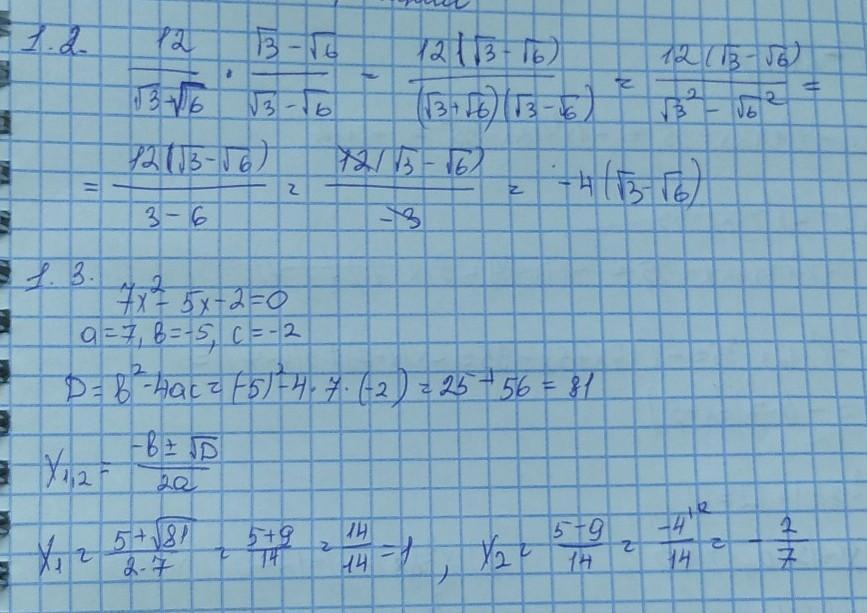 1.2. 12/(√3+√6) · (√3-√6)/(√3-√6) = 12(√3-√6)/((√3+√6)(√3-√6)) = 12(√3-√6)/(√3²-√6²) =
= 12(√3-√6)/(3-6) = 12(√3-√6)/(-3) = -4(√3-√6)
1.3.
7x²-5x-2=0
a=7, b=-5, c=-2
D=b²-4ac=(-5)²-4·7·(-2)=25+56=81
x₁,₂=(-b±√D)/(2a)
x₁=(5+√81)/(2·7)=(5+9)/14=14/14=1, x₂=(5-9)/14=-4/14=-2/7